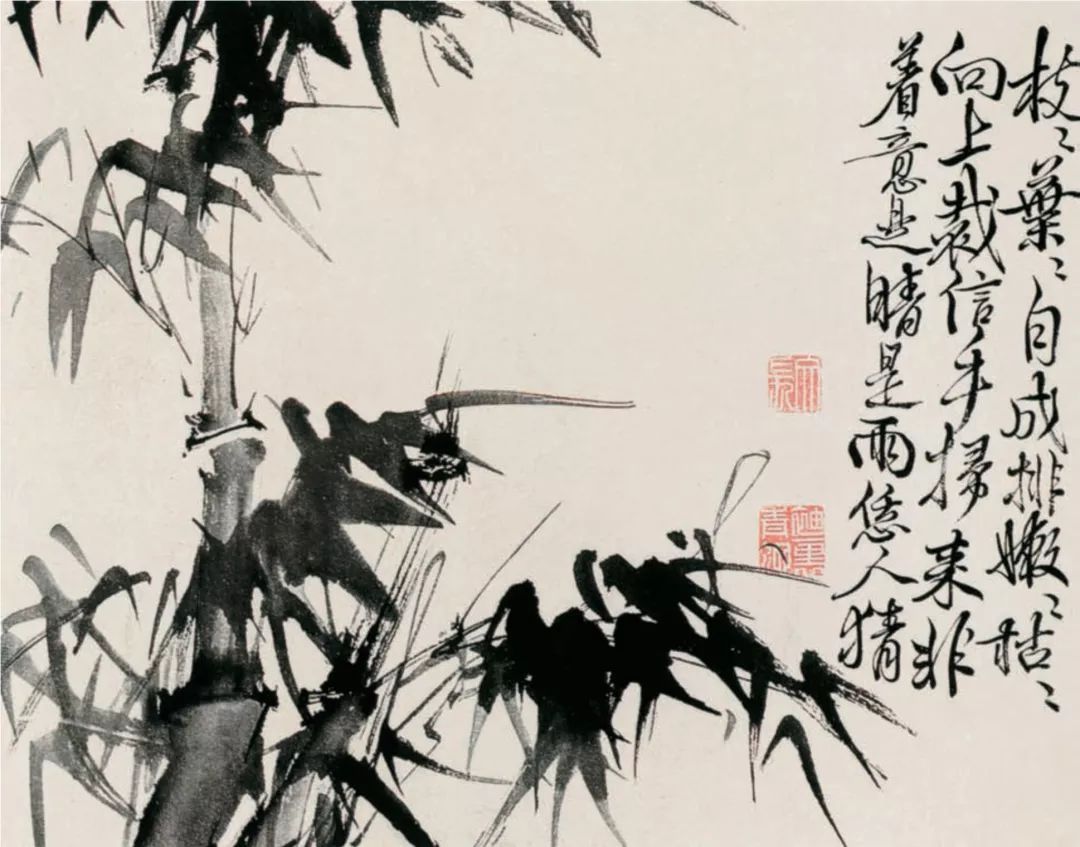 枝〻葉〻自成排嫩〻枯〻
向上裁信手掃来非
着意是晴是雨恁人猜